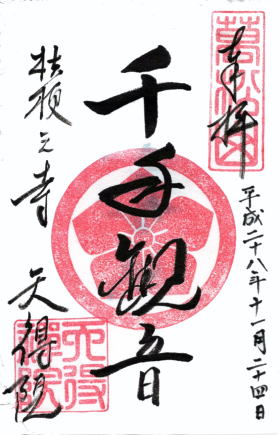 奉拝
平成二十八年十一月二十四日
千手観音
桔梗之寺 天得院
天得禅院